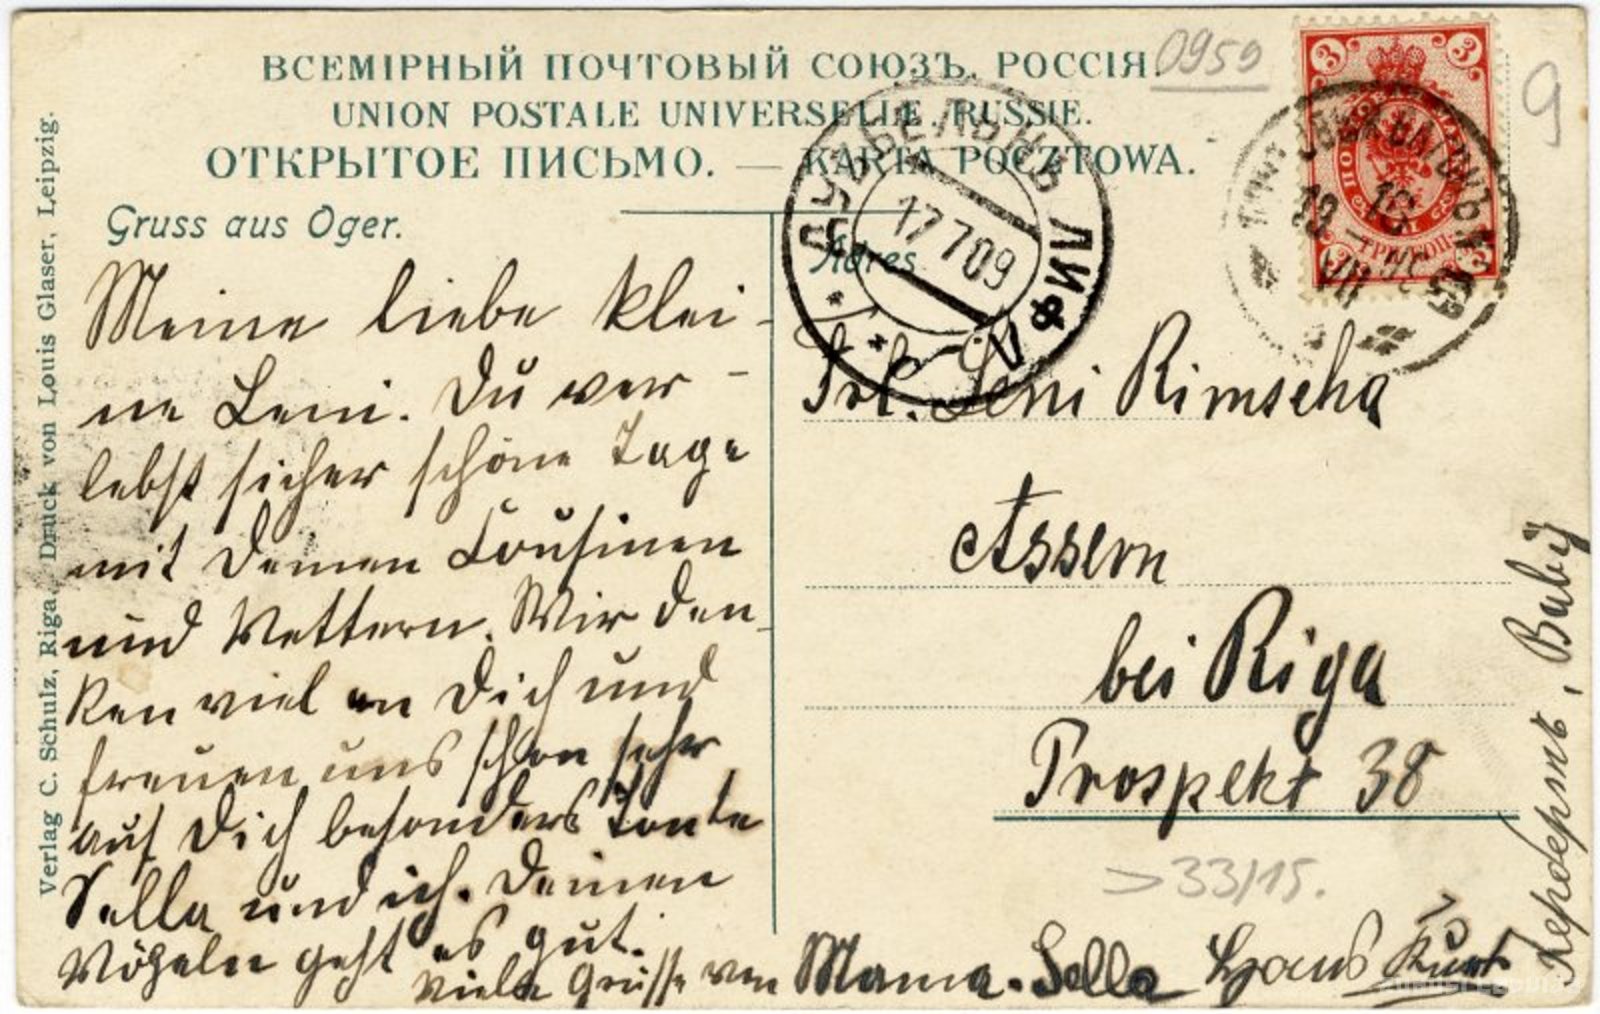 ВСЕМІРНЫЙ ПОЧТОВЫЙ СОЮЗЪ. РОССІЯ.
UNION POSTALE UNIVERSELLE. RUSSIE.
ОТКРЫТОЕ ПИСЬМО. — KARTA POCZTOWA.
0959
9
3 3
3 3
17 7 09
ЛИФЛ
Gruss aus Oger.
Adres
Meine liebe klei-
ne Leni. Du ver-
lebst sicher schöne Tage
mit Deinen Cousinen
und Vettern. Wir den-
ken viel an Dich und
freuen uns schon sehr
auf Dich besonders Tante
Sella und ich. Deinen
Vögeln geht es gut.
Viele Grüsse von Mama. Sella Hans Kurt
Frl. Leni Rimscha
Assern
bei Riga
Prospekt 38
33/15.
Verlag C. Schulz, Riga. Druck von Louis Glaser, Leipzig.